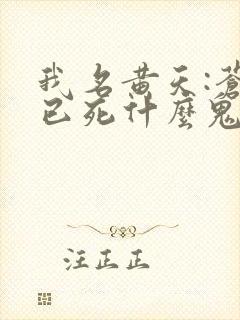 我名黄天:苍
已死什麼鬼
汪正正